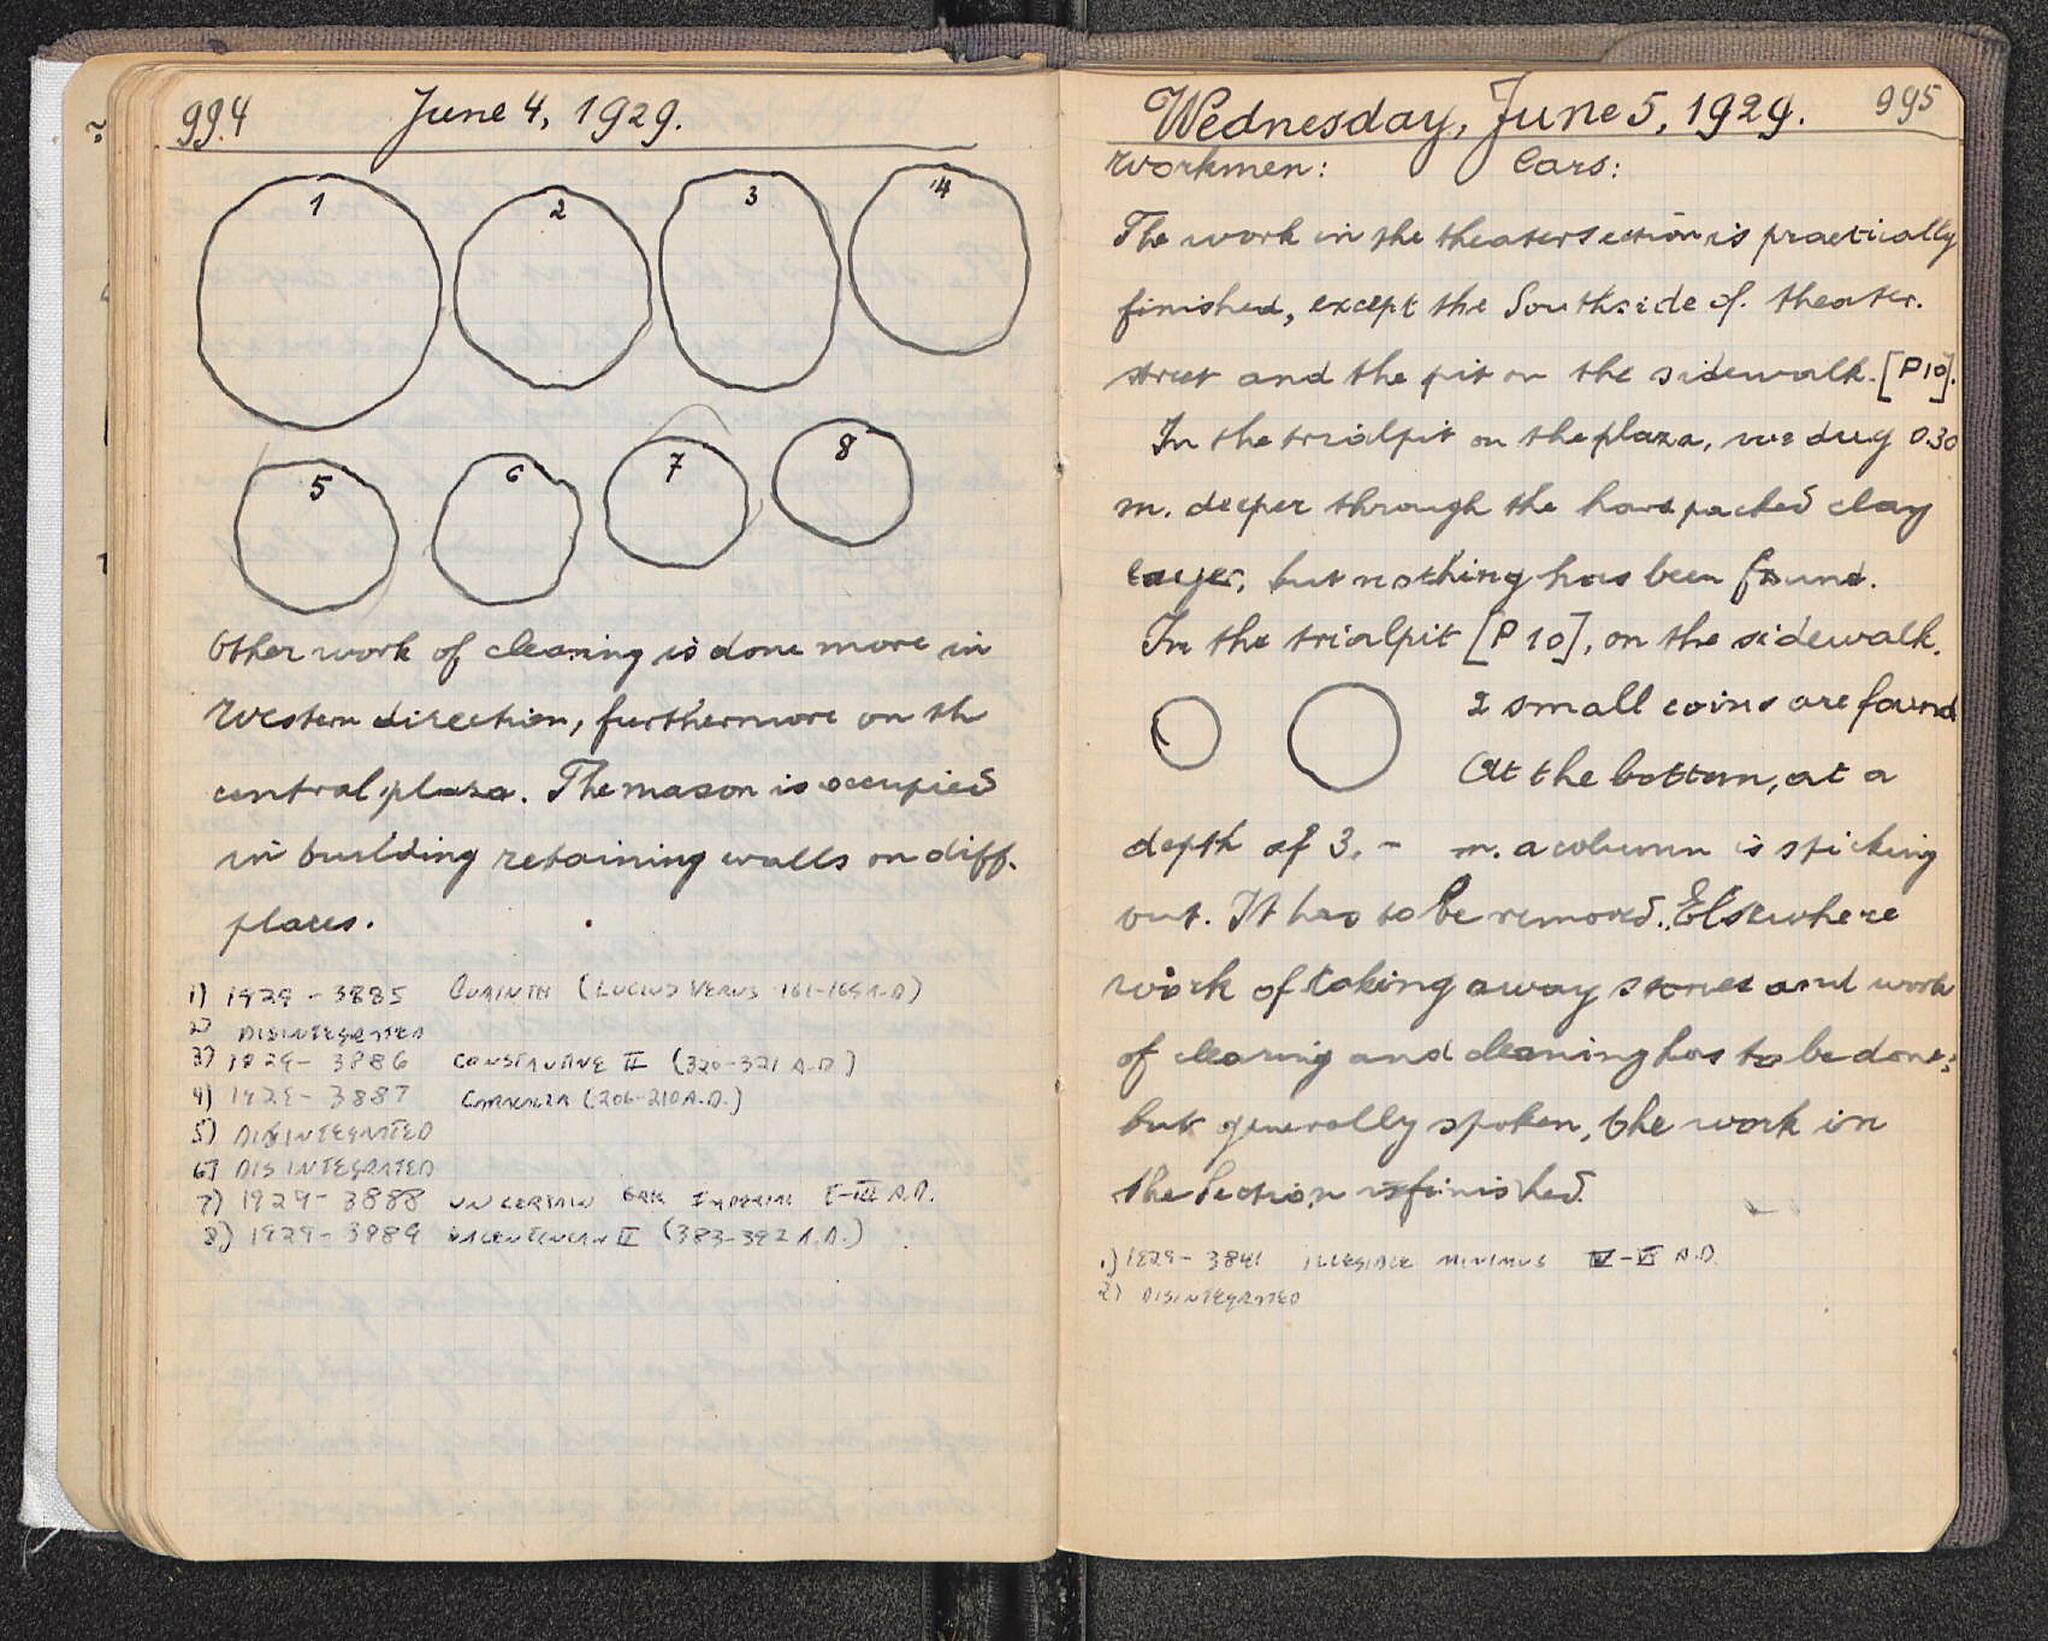 994 June 4, 1929.
1 2 3 4
5 6 7 8
Other work of cleaning is done more in
Western direction, furthermore on th
central plaza. The mason is occupied
in building retaining walls on diff.
places.
1) 1929 - 3885 CORINTH (LUCIUS VERUS 161-169 A.D)
2) DISINTEGRATED
3) 1929 - 3886 CONSTANTINE II (320-321 A.D)
4) 1929 - 3887 CARACALLA (206-210 A.D.)
5) DISINTEGRATED
6) DISINTEGRATED
7) 1929 - 3888 UNCERTAIN GRK IMPERIAL I-III A.D.
8) 1929 - 3889 VALENTINIAN II (383-392 A.D.)
Wednesday, June 5, 1929. 995
Workmen: Cars:
The work in the theatersection is practically
finished, except the Southside of theater.
street and the pit on the sidewalk. [P10].
In the trialpit on the plaza, we dug 0.30
m. deeper through the hard packed clay
layer, but nothing has been found.
In the trialpit [P 10], on the sidewalk.
2 small coins are found
At the bottom, at a
depth of 3.- m. a column is sticking
out. It has to be removed. Elsewhere
work of taking away stones and work
of clearing and cleaning has to be done;
but generally spoken, the work in
the Section is finished.
1) 1929 - 3841 ILLEGIBLE MINIMUS A.D.
2) DISINTEGRATED